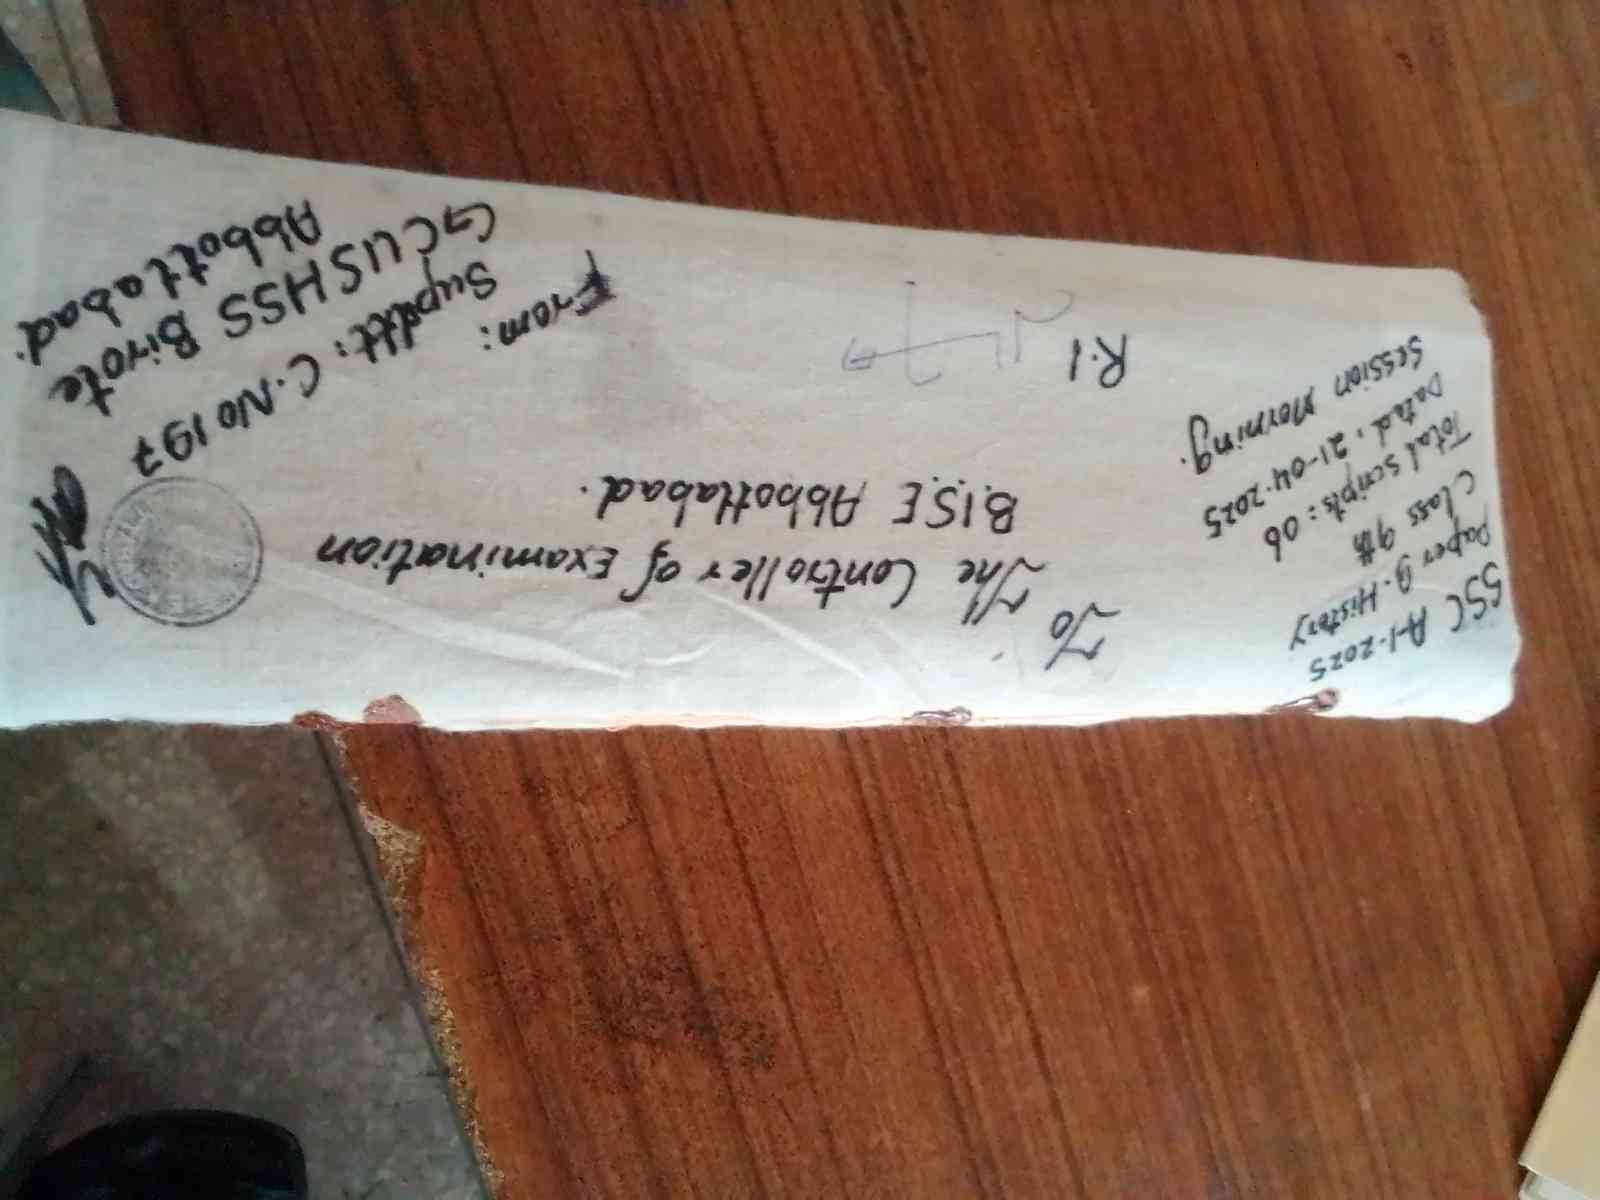 SSC A-I-2025
Paper G. History
Class 9th
Total scripts: 06
Dated. 21-04-2025
Session Morning.
R.1
To
The Controller of Examination
B.I.S.E Abbottabad.
From:
Supdtt: C.No 197
GCUSHSS Birote
Abbottabad.